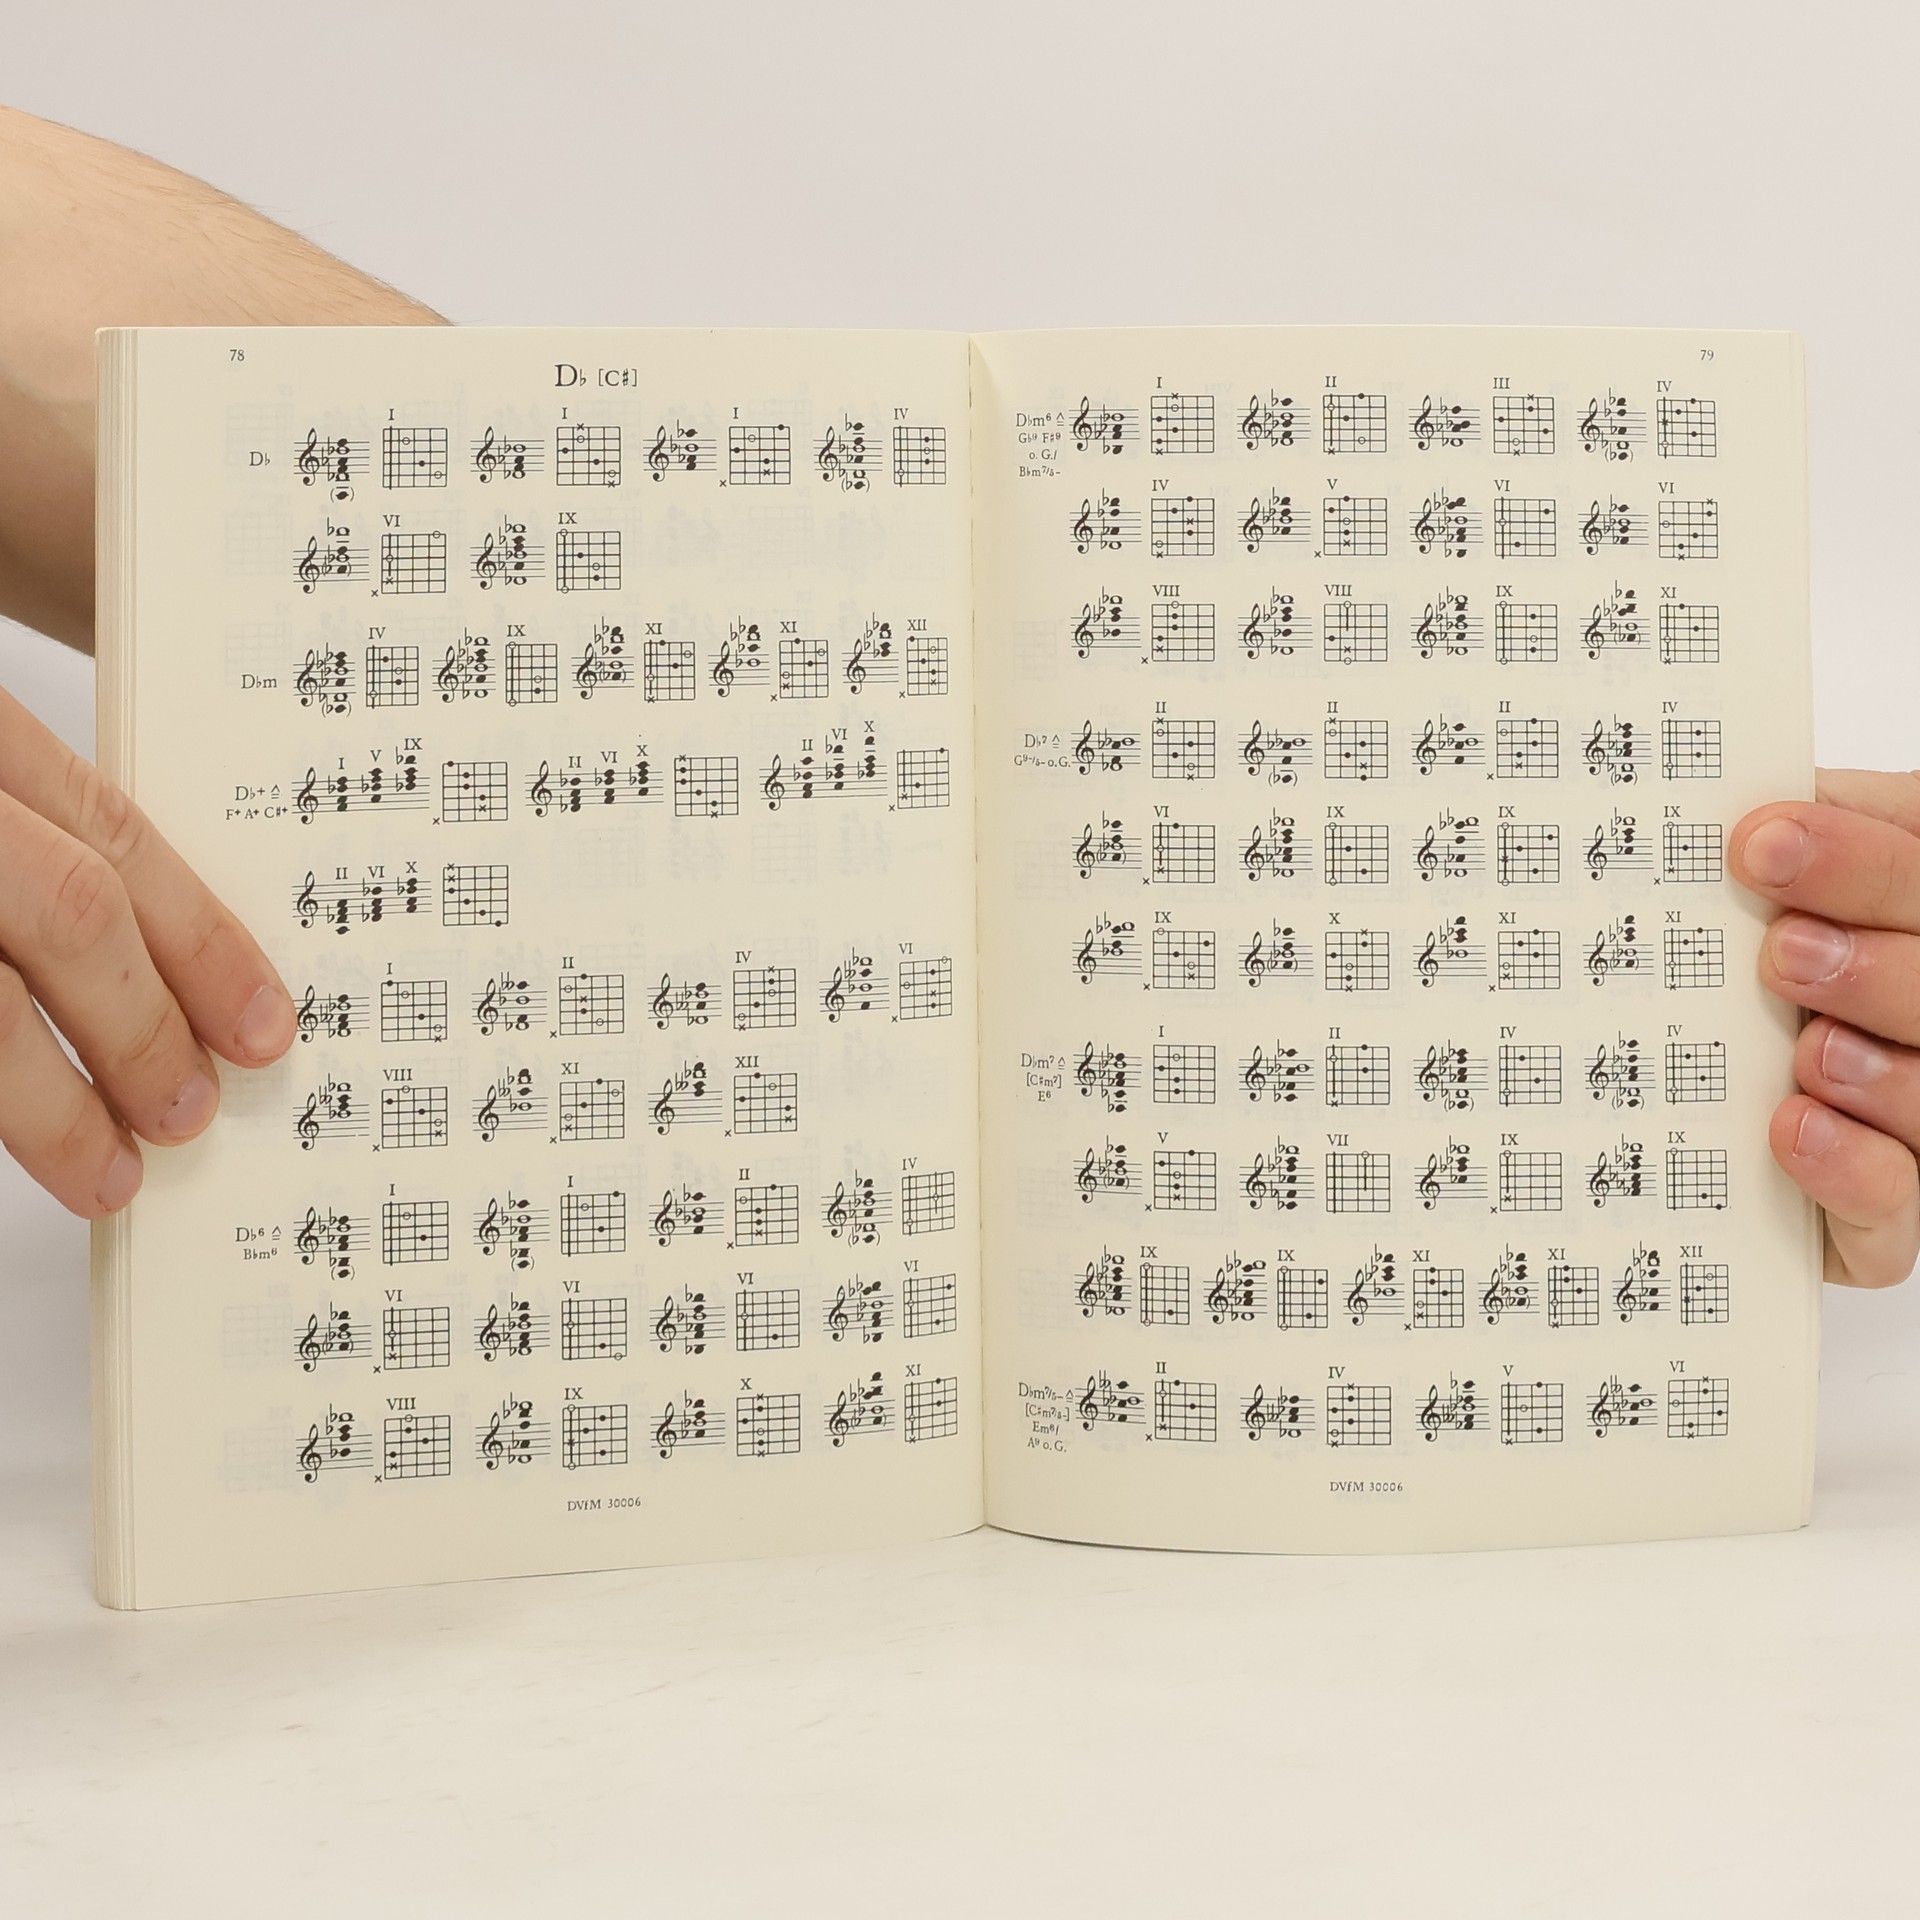 78
D♭ [C♯]
I I I IV
D♭
VI IX
IV IX XI XI XII
D♭m
I V IX II VI X II VI X
D♭+ ≙
F+ A+ C♯+
II VI X
I II IV VI
VIII XI XII
I I II IV
D♭6 ≙
B♭m6
VI VI VI VI
VIII IX X XI
DVfM 30006
79
I II III IV
D♭m6 ≙
G♭9 F♯9
o. G./
B♭m7/5-
IV V VI VI
VIII VIII IX XI
II II II IV
D♭7 ≙
G9-/5- o. G.
VI IX IX IX
IX X XI XI
I II IV IV
D♭m7 ≙
[C♯m7]
E6
V VII IX IX
IX IX XI XI XII
II IV V VI
D♭m7/5- ≙
[C♯m7/5-]
Em6/
A9 o. G.
DVfM 30006